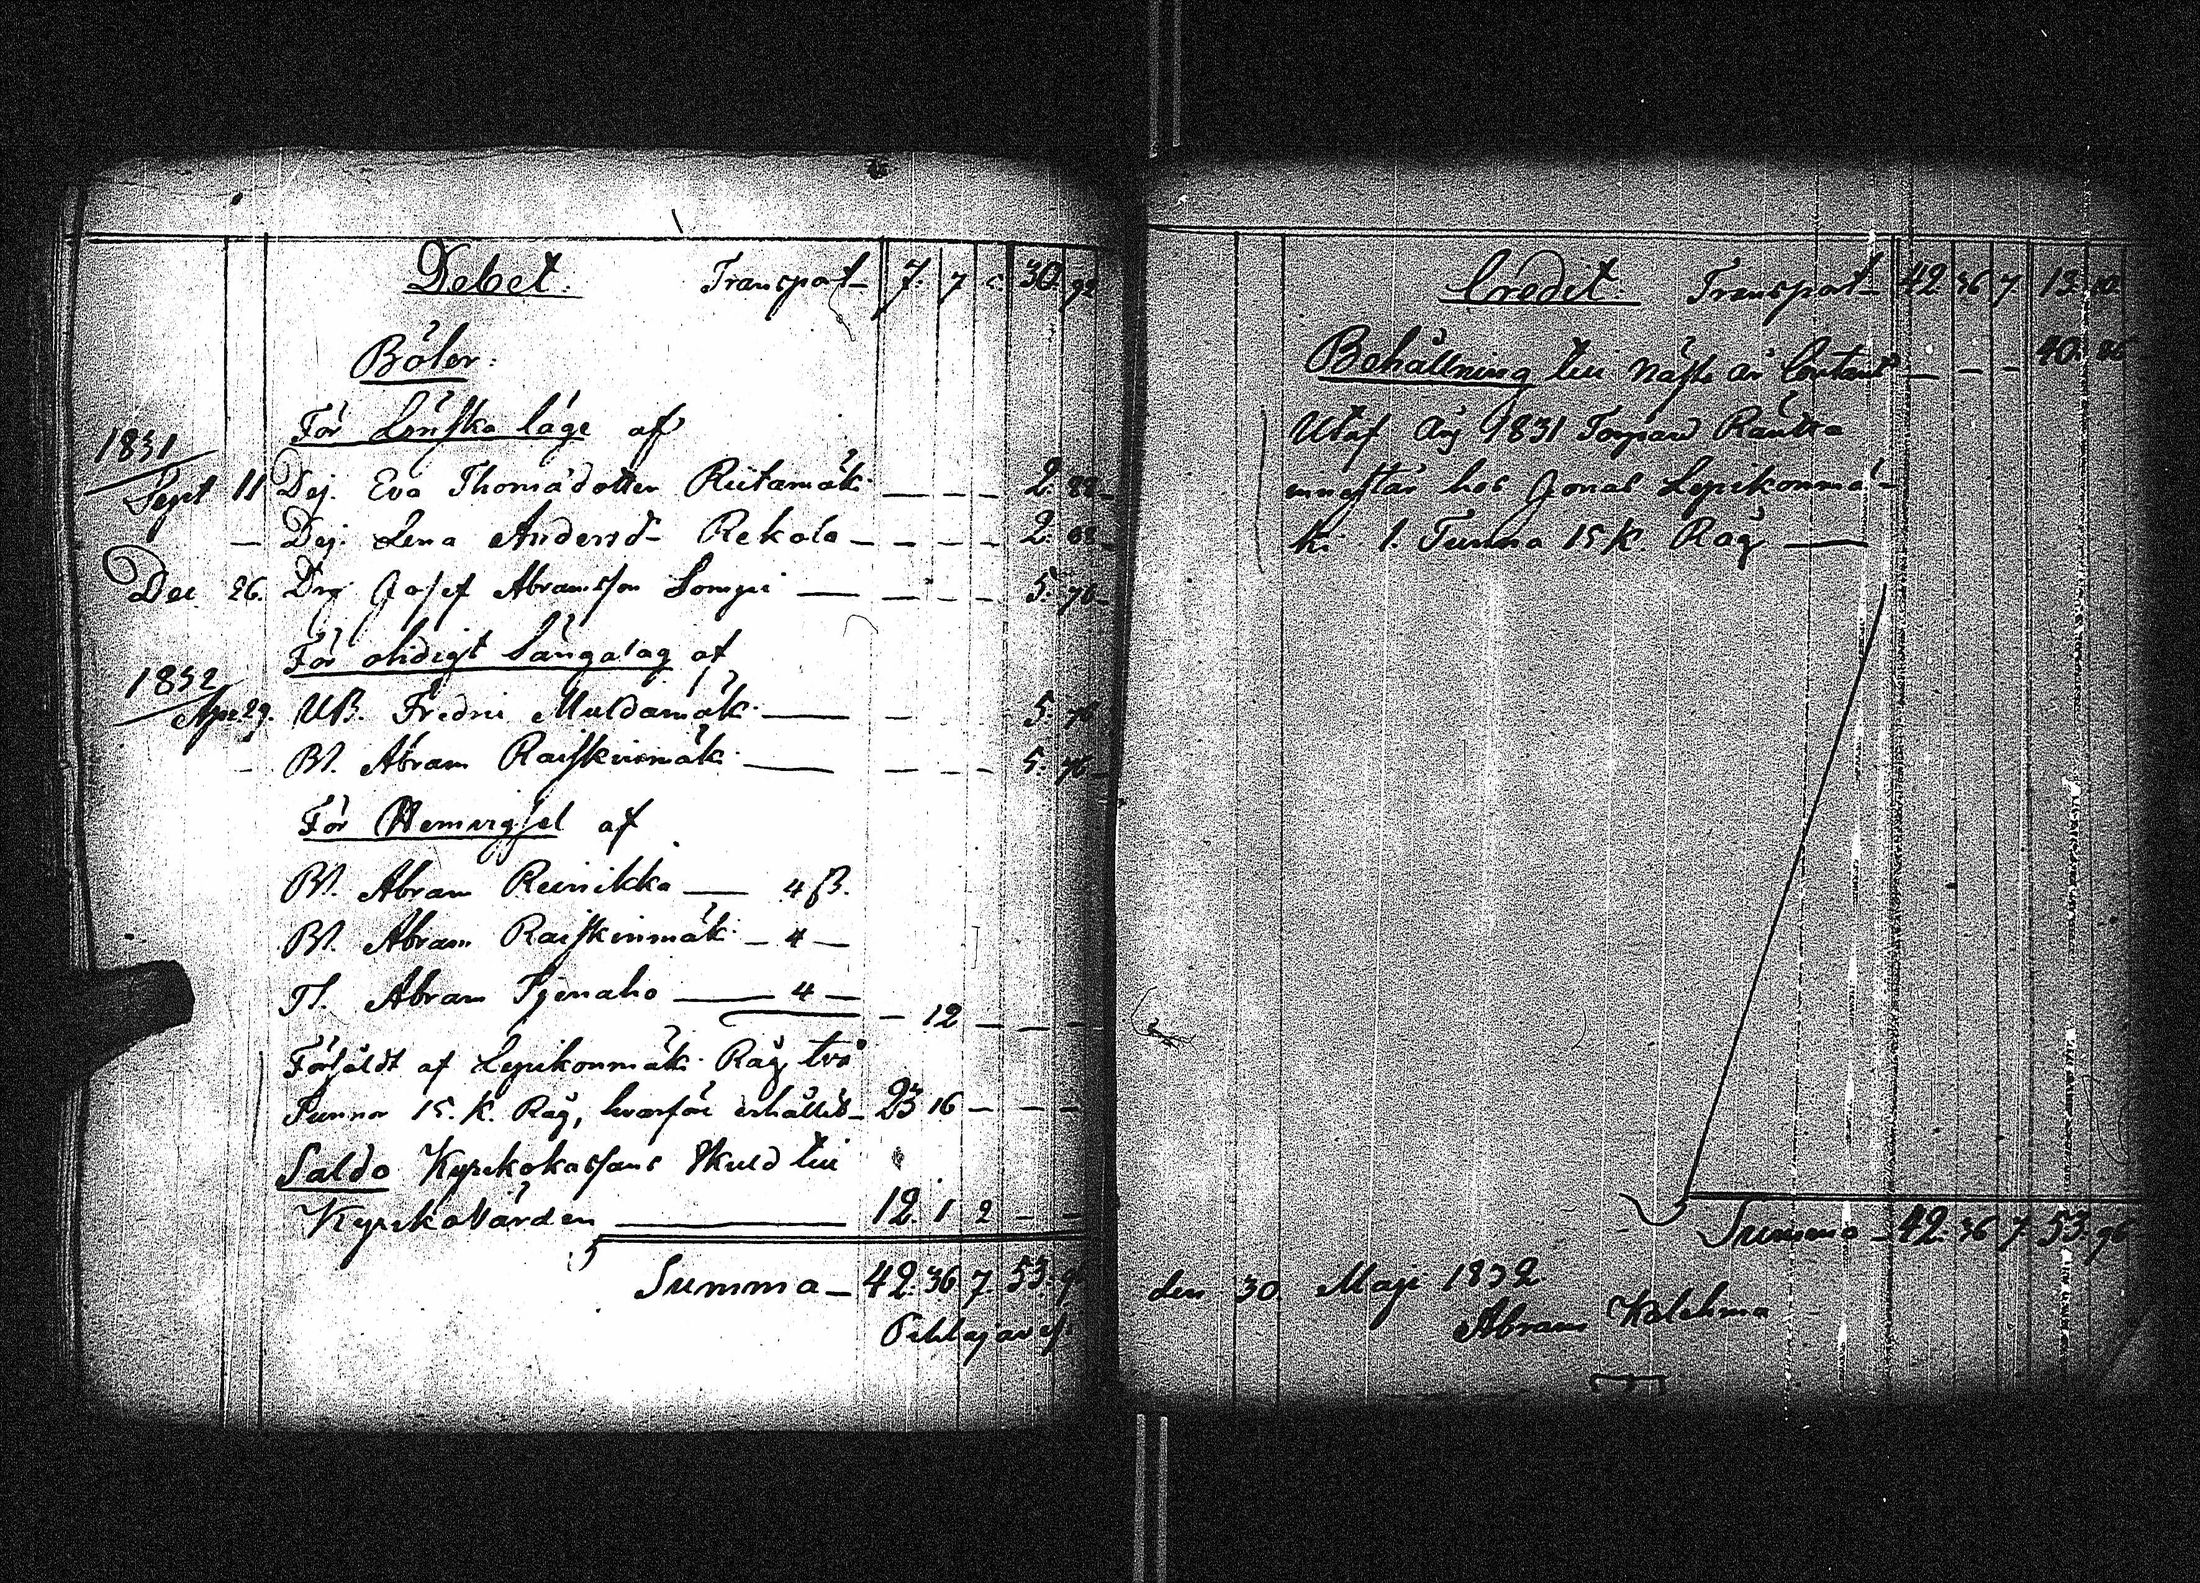 Debet. Transport 7. 7 30. 92
Böter:
För Lönska läge af
1831
Sept 11 Dej. Eva Thomædotter Riitamäki — — — 2. 88
— Dej. Lena Andersd. Rekola — — — — 2. 88
Dec 26. Drg Josef Abramsson Lompi — — — — 5. 76
För otidigt Sängalag af
1832
Apr 29. UB. Fredric Muldamäk. — — 5. 76
— Bd. Abram Raiskinmäk. — — — — 5. 76
För Hemvigsel af
Bd. Abram Reinikka — 4 ß.
Bd. Abram Raiskinmäk. — 4 —
Abram — 4 —
— 12 — — —
Försåldt af Lepikonmäk. Råg två
Tunnor 15. K. Råg, hvarföre erhållit — 23 16 — — —
Saldo Kyrkokassans Skuld till
Kyrkovärden — 12. 1 2 — —
Summa — 42. 36 7. 53. 96
Credit. Transport — 42. 36 7 13. 10.
Behållning till näste år Contant — — — 40. 86
Utaf Åhr 1831
hos Jonas Lepikonmä-
ki 1. Tunna 15 K. Råg —
Summa — 42. 36 7. 53. 96
den 30 Maji 1832
Abram